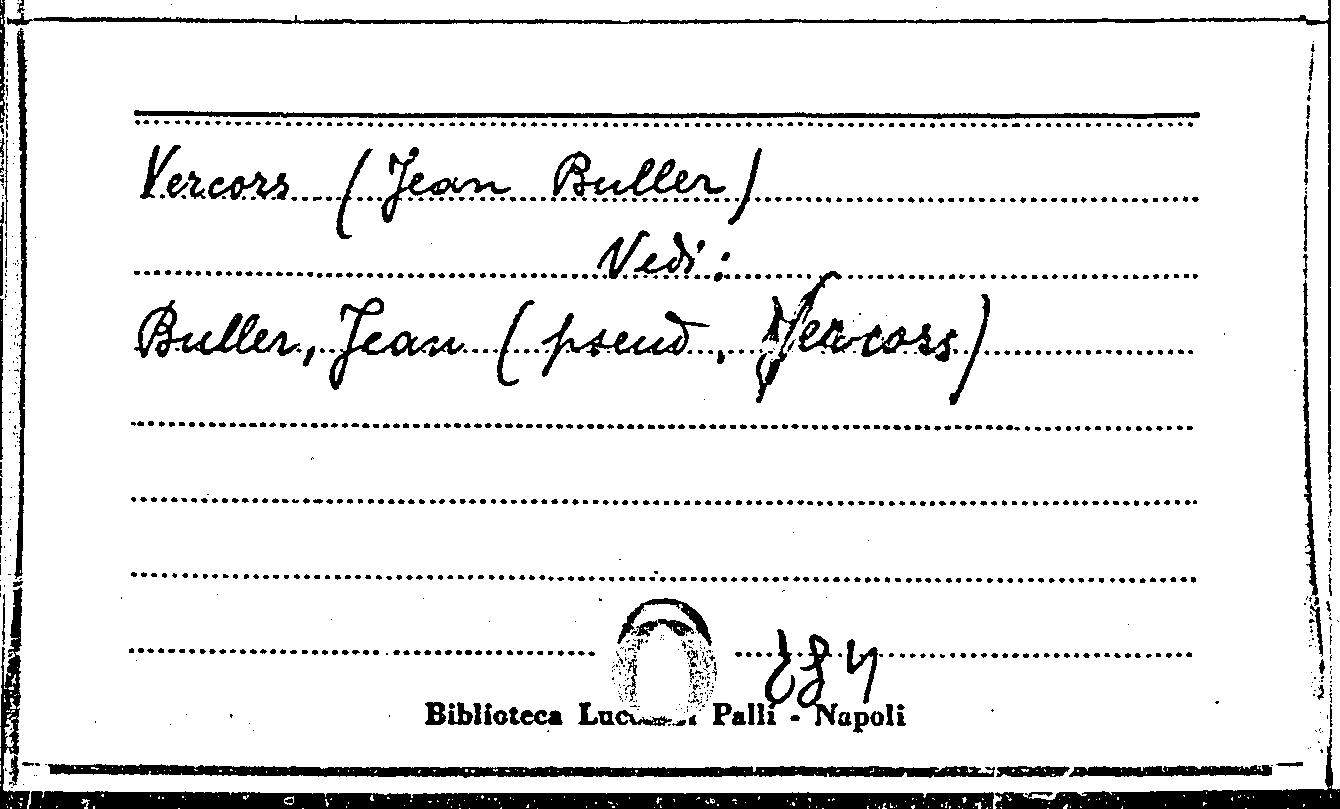 Vercors (Jean Buller)
Vedi:
Buller, Jean (pseud. Vercors)
Biblioteca Palli - Napoli